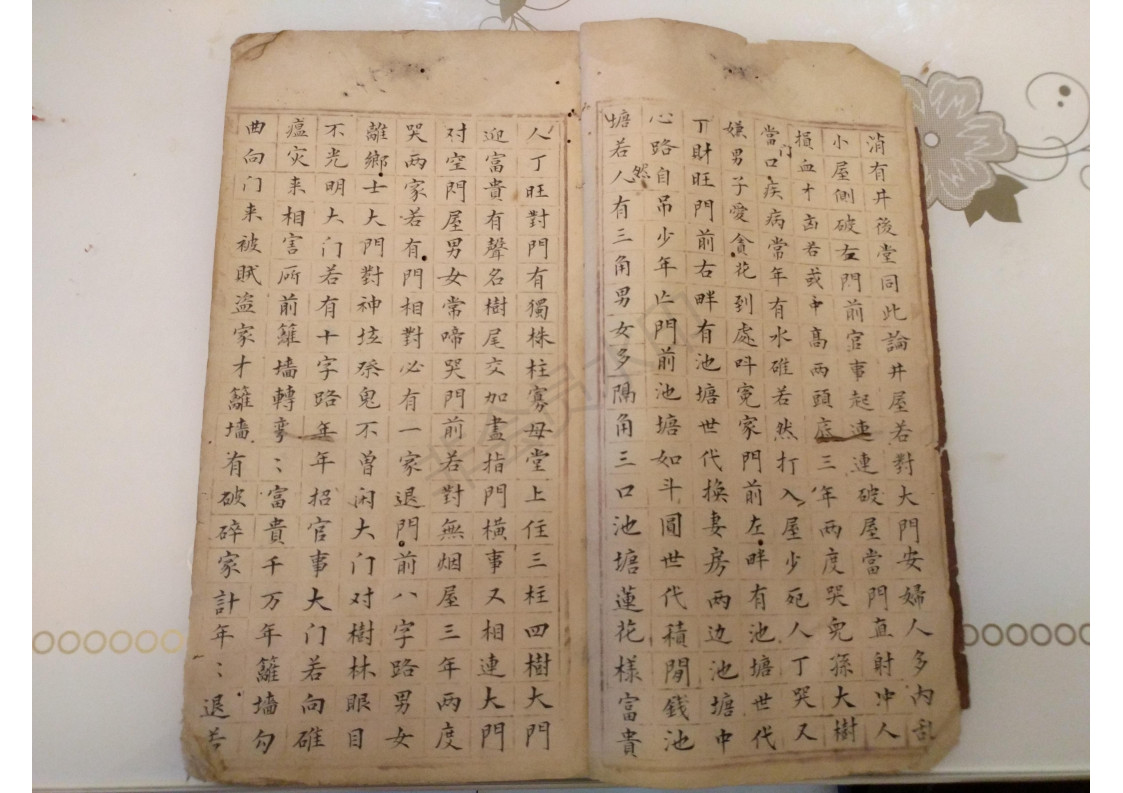 消有井後堂同此論井屋若對大門安婦人多内乱
小屋側破左門前官事起連連破屋當門直射冲人
損血才凶若或中髙两頭底三年两度哭兒孫大樹
當门口疾病常年有水碓若然打入屋少死人丁哭又
嫌男子愛貪花到處呌寃家門前左畔有池塘世代
丁財旺門前右畔有池塘世代換妻房两边池塘中
心路自吊少年亡門前池塘如斗圓世代積閒錢池
塘若然人有三角男女多隅角三口池塘蓮花樣富貴
人丁旺對門有獨株柱寡母堂上住三柱四樹大門
迎富貴有聲名樹尾交加盡指門橫事又相連大門
对空門屋男女常啼哭門前若對無烟屋三年两度
哭两家若有門相對必有一家退門前八字路男女
離鄉士大門對神坛祭鬼不曾闲大门对樹林眼目
不光明大门若有十字路年年招官事大门若向碓
瘟灾来相害所前籬墙轉弯〻富貴千万年籬墙勾
曲向门来被賊盗家才籬墙有破碎家計年〻退若